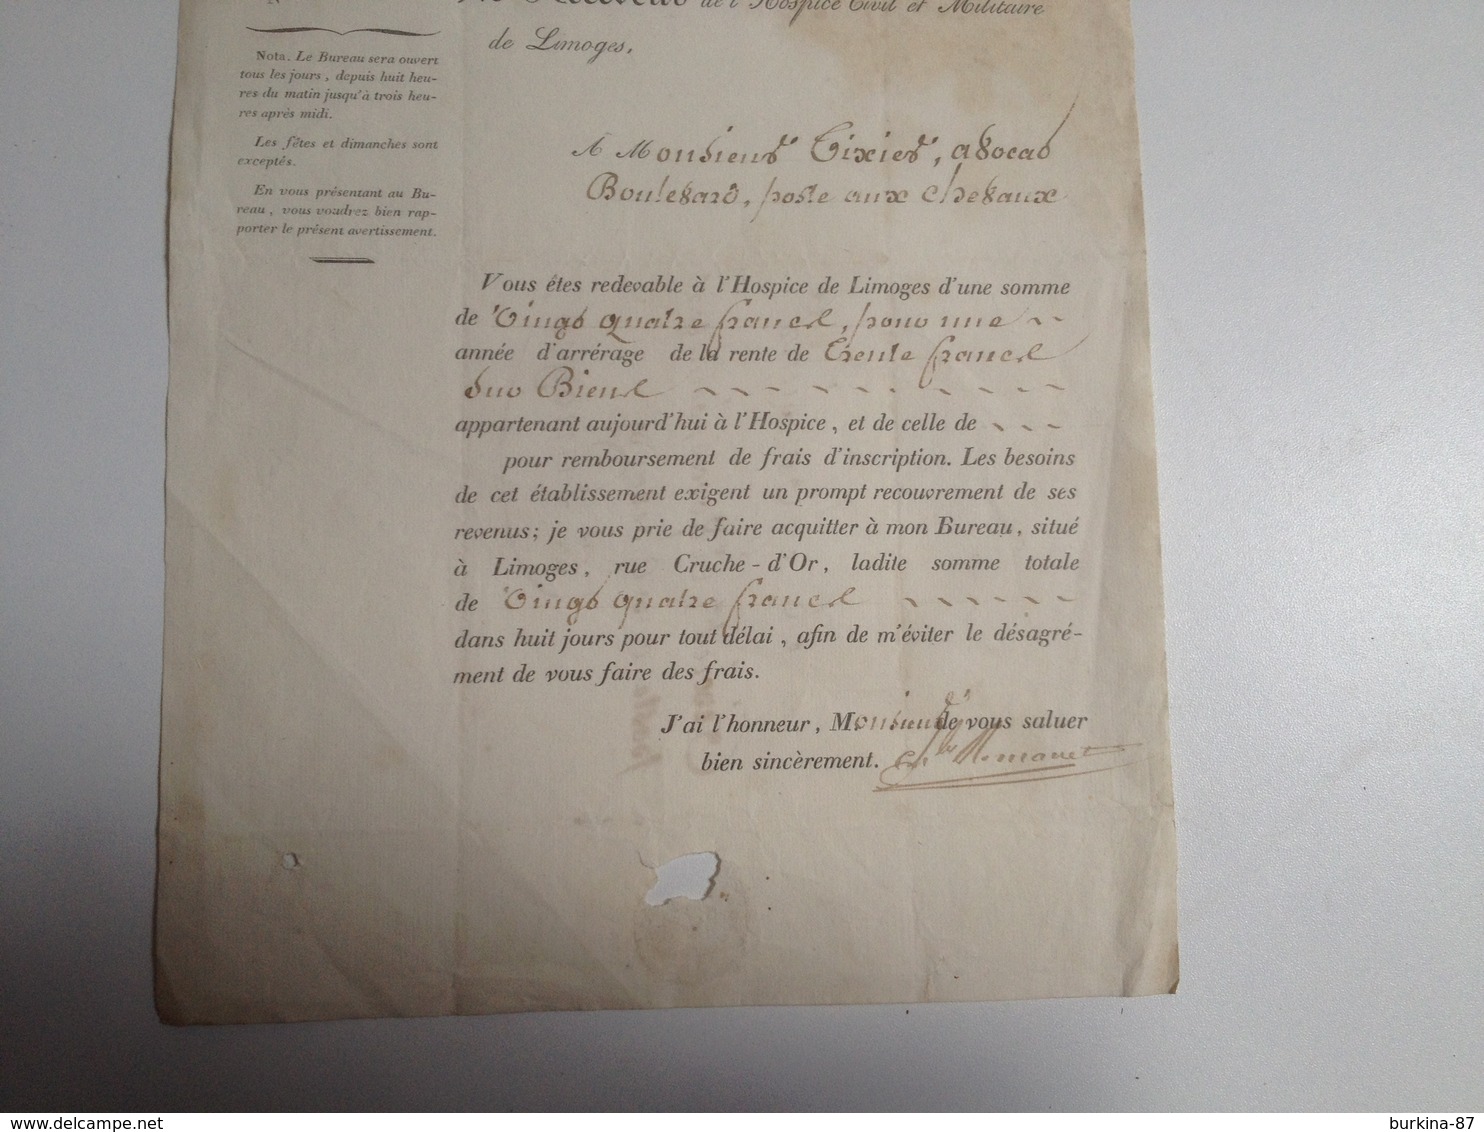 N
Le Receveur de l'Hospice Civil et Militaire
de Limoges,
Nota. Le Bureau sera ouvert
tous les jours, depuis huit heu-
res du matin jusqu'à trois heu-
res après midi.
Les fêtes et dimanches sont
exceptés.
En vous présentant au Bu-
reau, vous voudrez bien rap-
porter le présent avertissement.
A Monsieur Tixier, avocat
Boulevard, poste aux chevaux
Vous êtes redevable à l'Hospice de Limoges d'une somme
de Vingt quatre francs, pour une
année d'arrérage de la rente de Trente francs
sur Biens
appartenant aujourd'hui à l'Hospice, et de celle de
pour remboursement de frais d'inscription. Les besoins
de cet établissement exigent un prompt recouvrement de ses
revenus; je vous prie de faire acquitter à mon Bureau, situé
à Limoges, rue Cruche-d'Or, ladite somme totale
de Vingt quatre francs
dans huit jours pour tout délai, afin de m'éviter le désagré-
ment de vous faire des frais.
J'ai l'honneur, Monsieur de vous saluer
bien sincèrement.
burkina-87